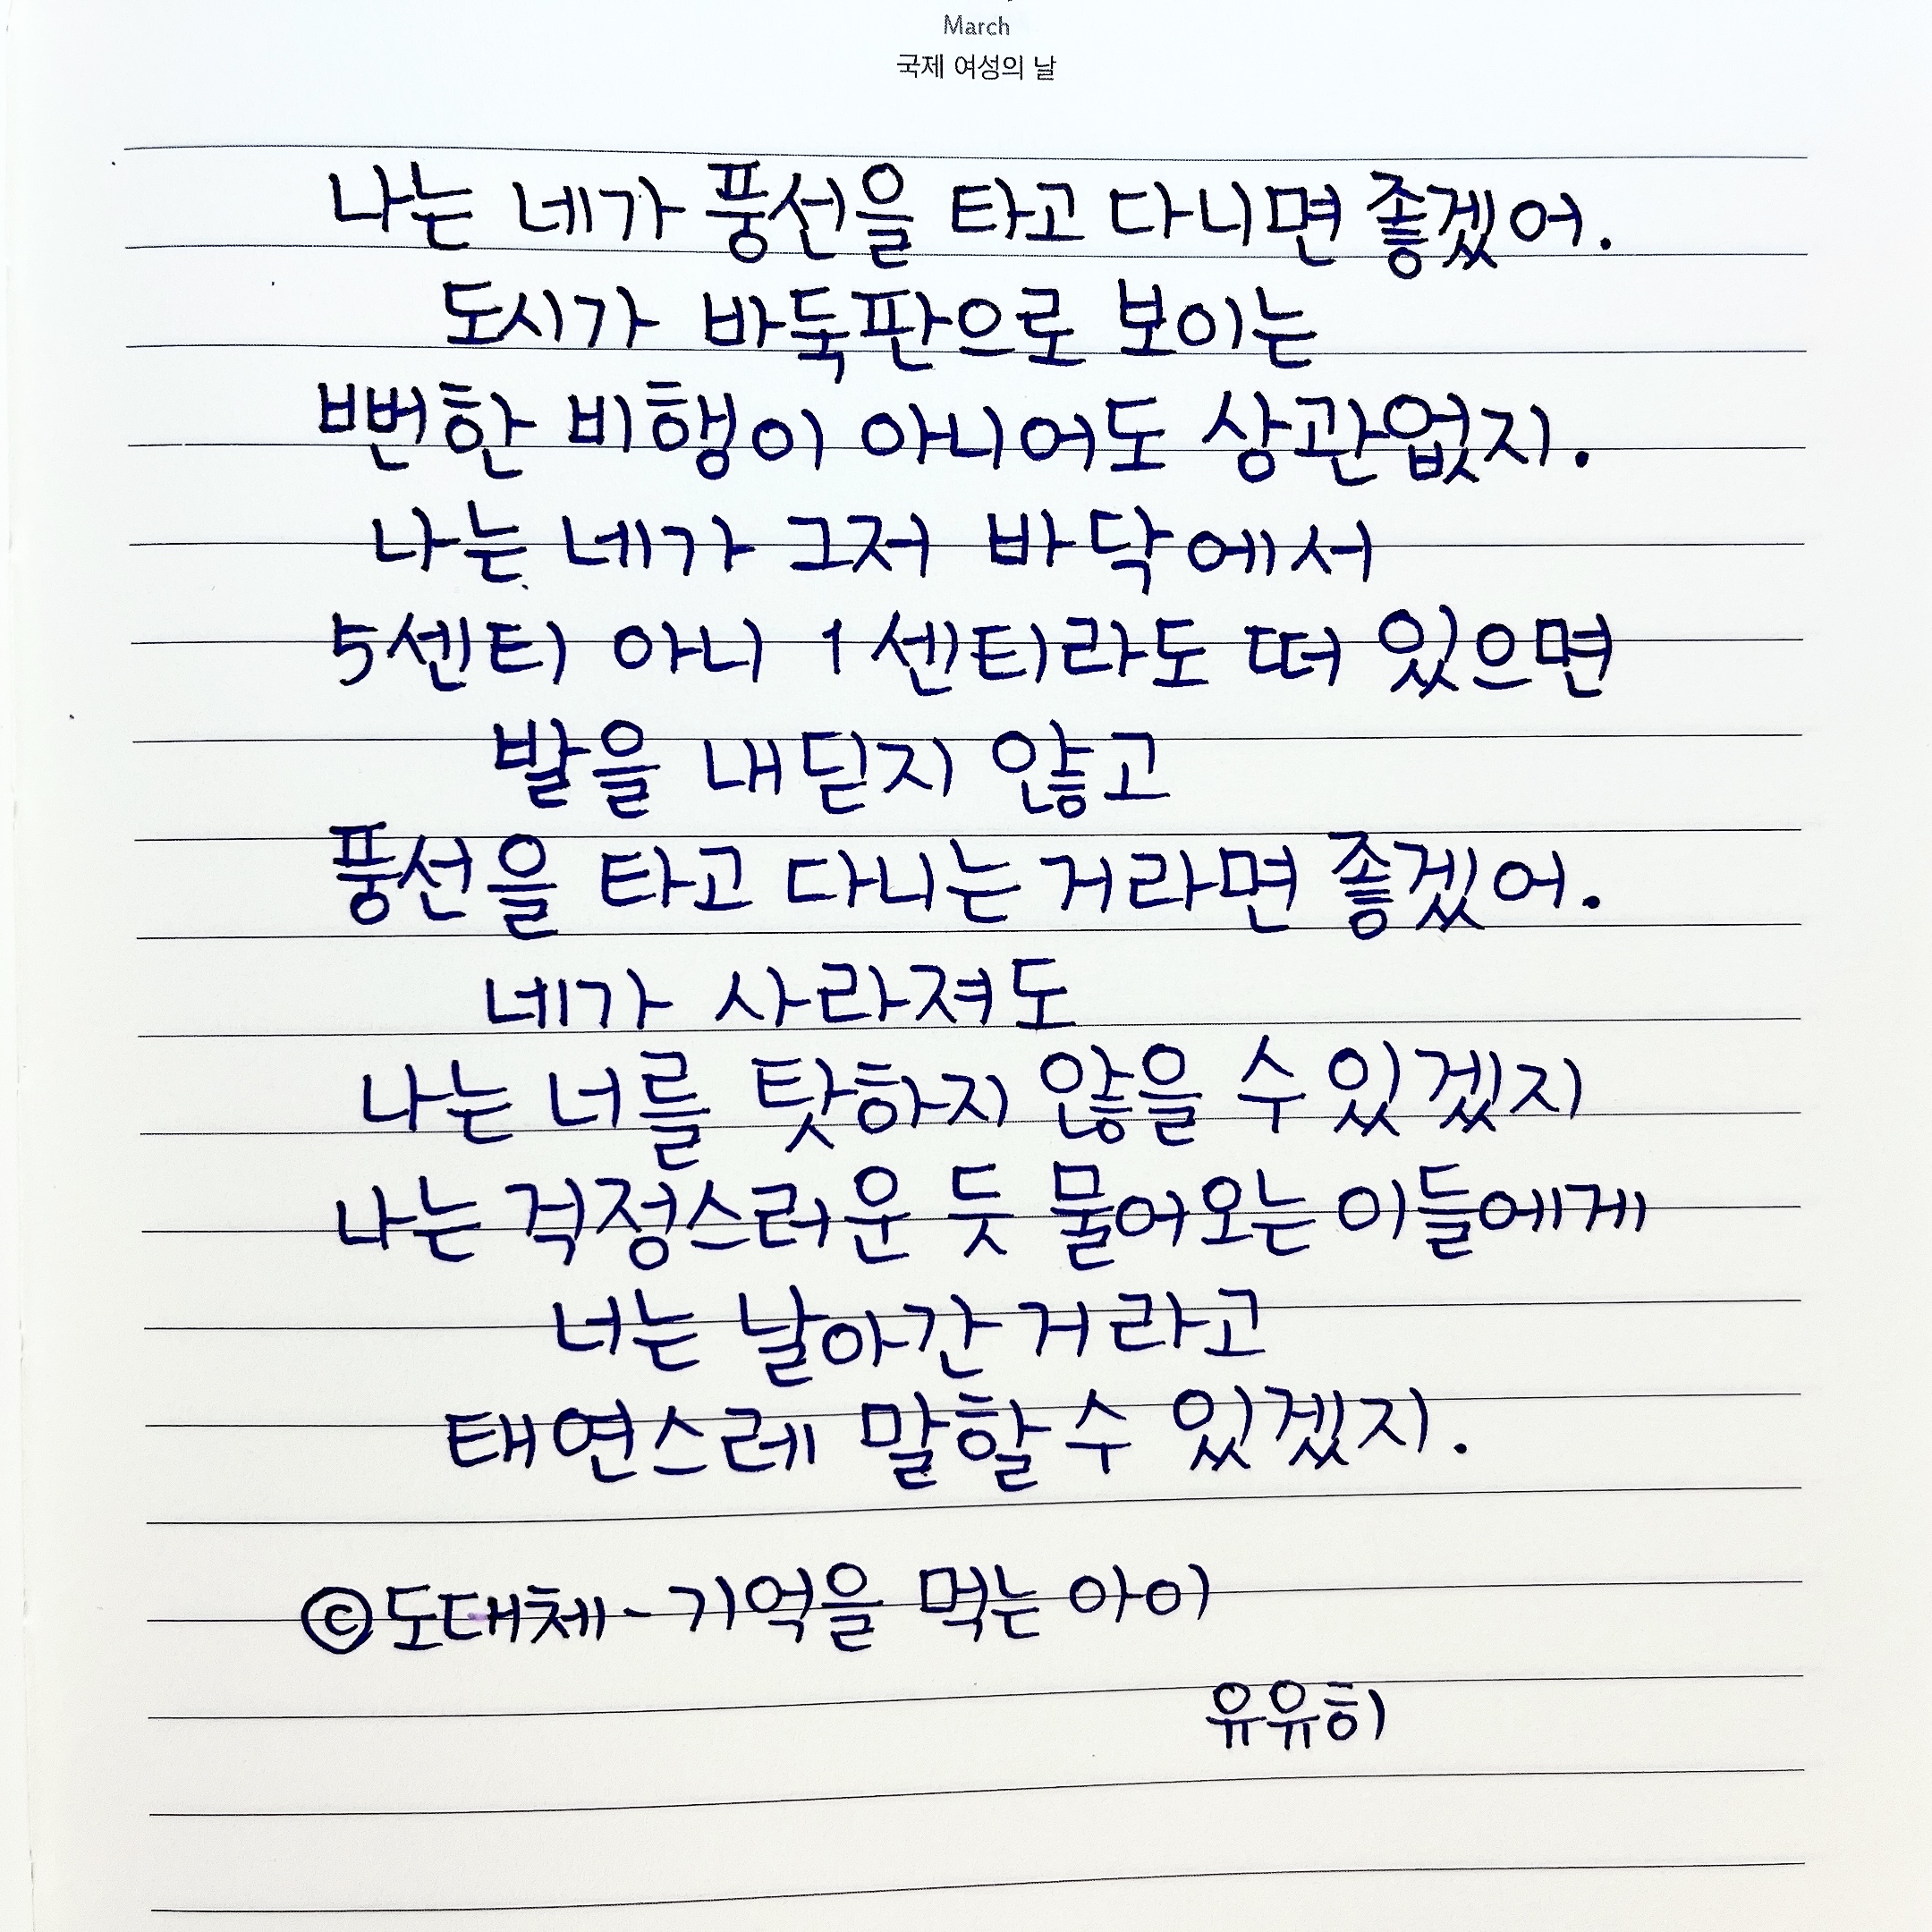 March
국제 여성의 날
나는 네가 풍선을 타고 다니면 좋겠어.
도시가 바둑판으로 보이는
뻔한 비행이 아니어도 상관없지.
나는 네가 그저 바닥에서
5센티 아니 1센티라도 떠 있으면
발을 내딛지 않고
풍선을 타고 다니는 거라면 좋겠어.
네가 사라져도
나는 너를 탓하지 않을 수 있겠지
나는 걱정스러운 듯 물어오는 이들에게
너는 날아간 거라고
태연스레 말할 수 있겠지.
©도대체-기억을 먹는 아이
유유히